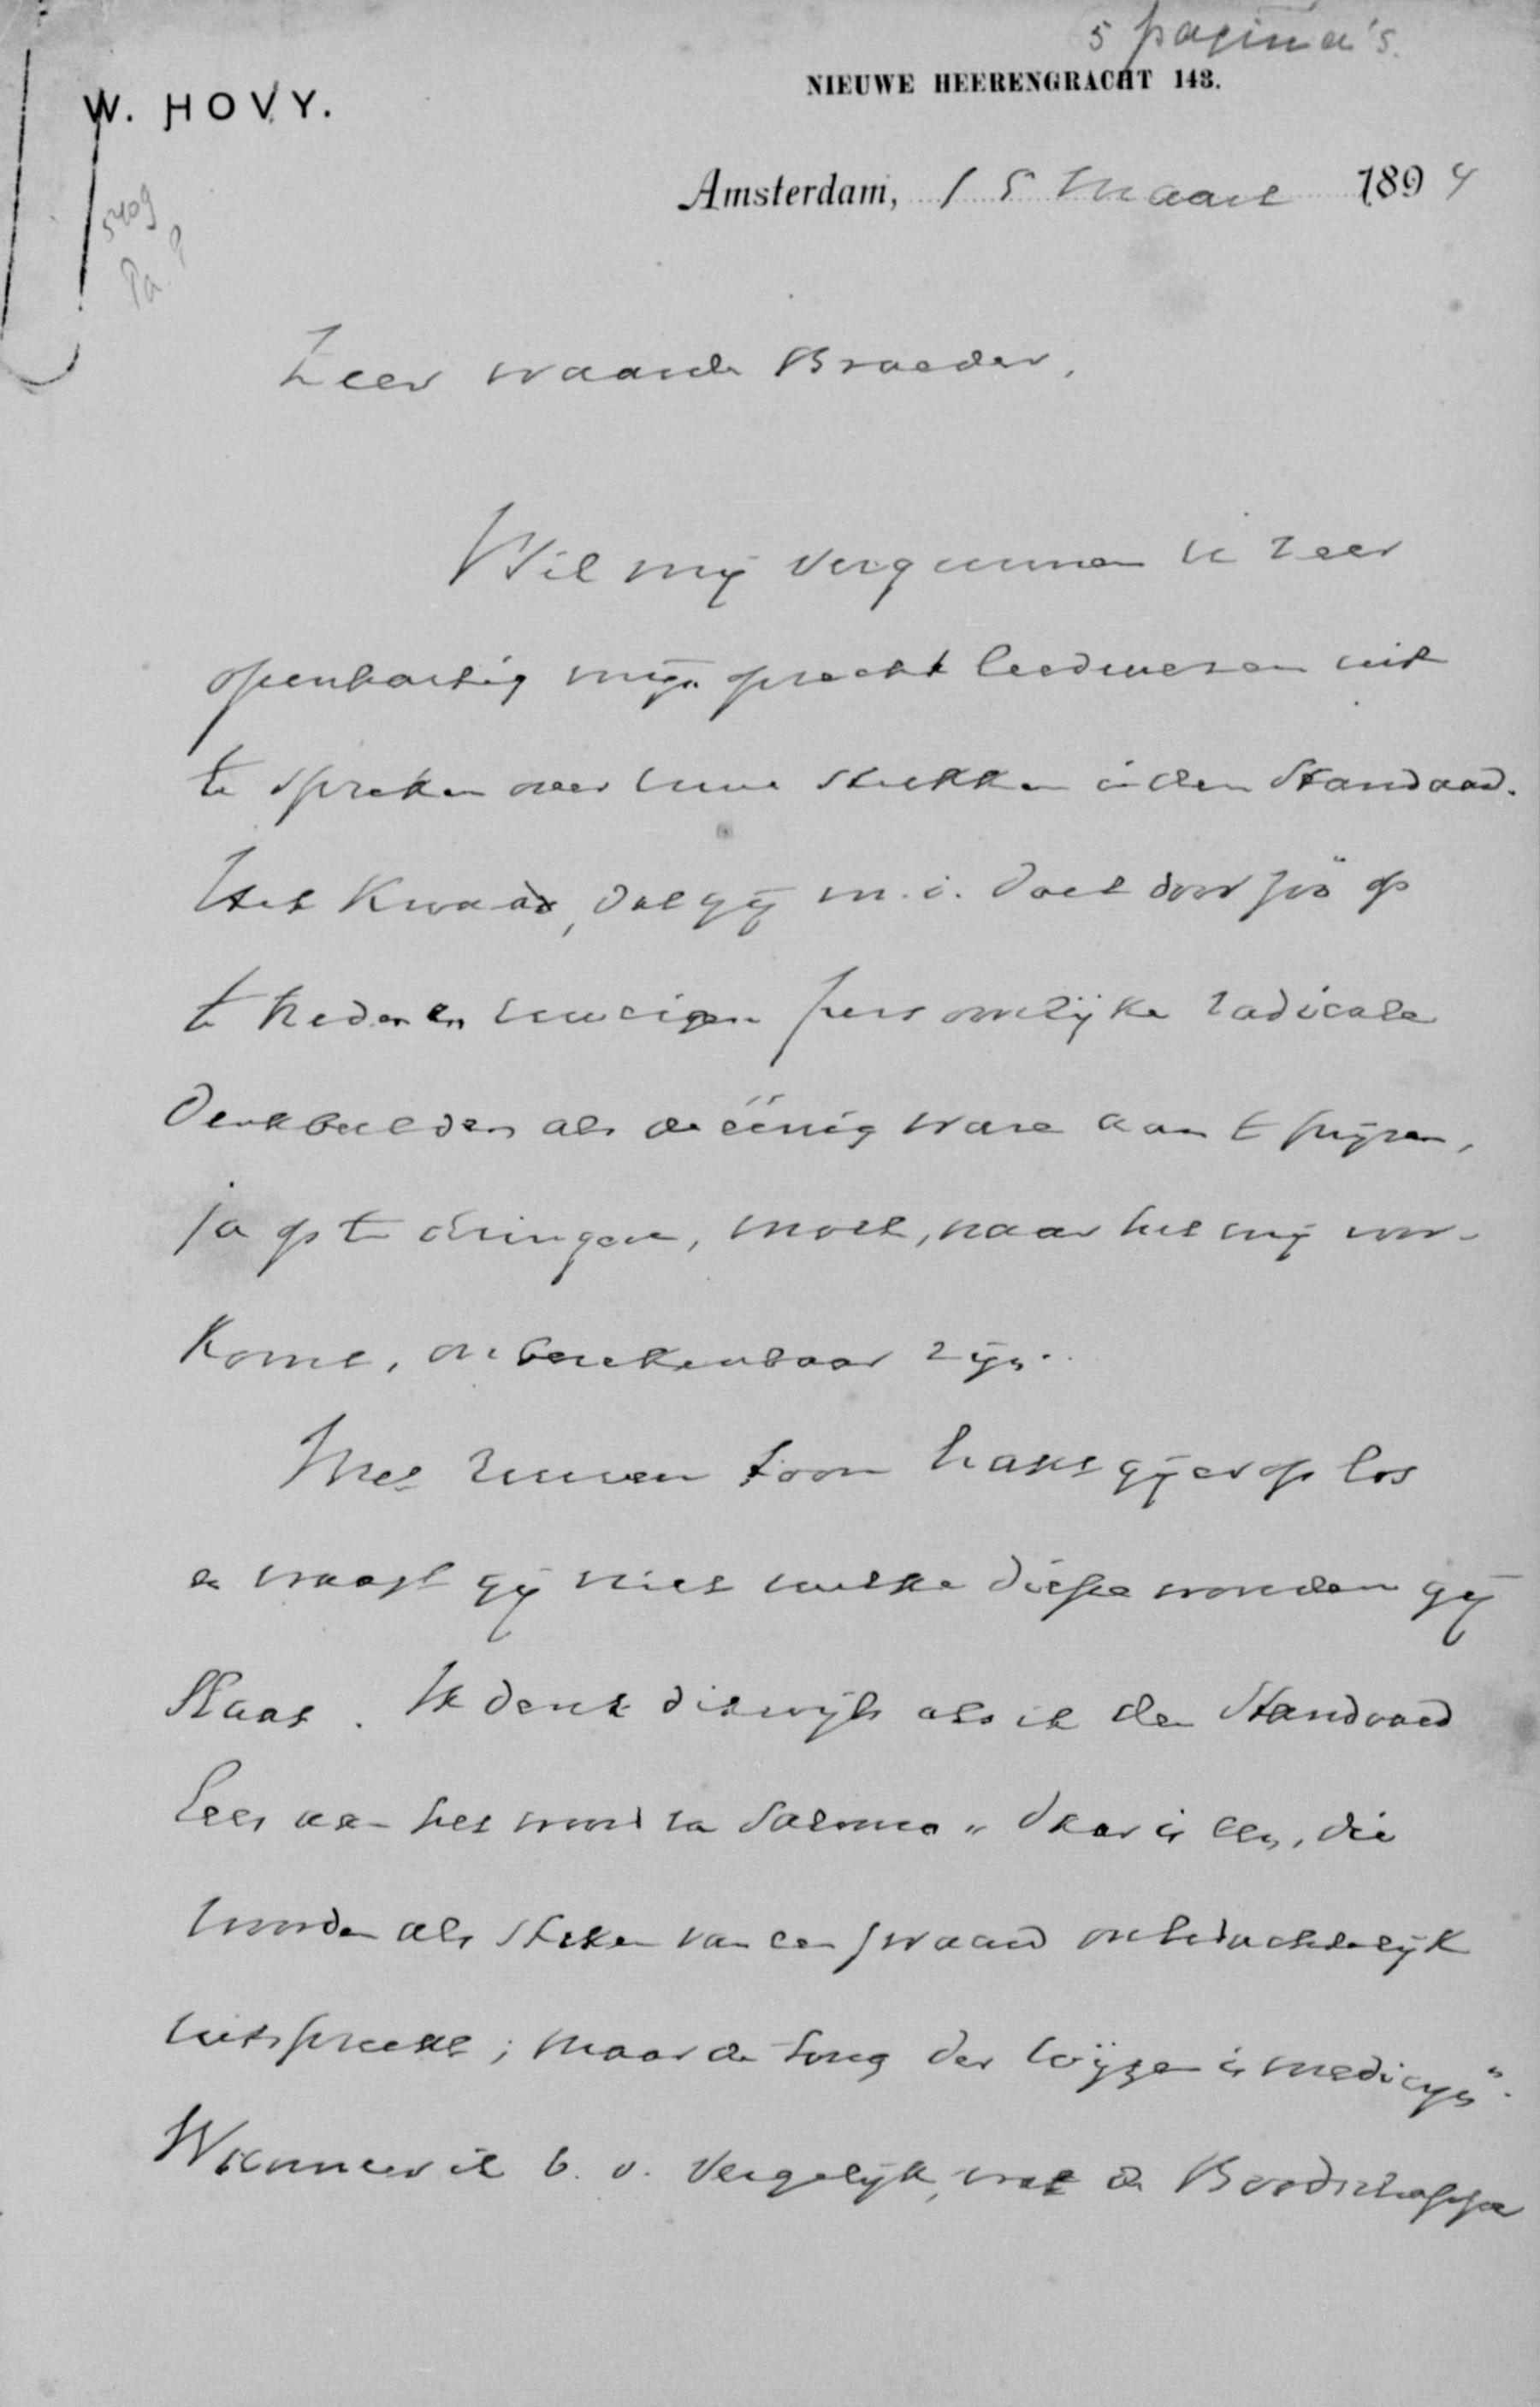 5 pagina's.
NIEUWE HEERENGRACHT 143.
W. HOVY.
5409
Pa. P
Amsterdam, 15 Maart 1894
Zeer waarde Broeder,
Wil mij vergunnen U zeer
openhartig mijn oprecht leedwezen uit
te spreken over uwe stukken in den Standaard.
Het kwaad, dat gij m.i. doet door zóó op
te treden en uw eigen persoonlijke radicale
denkbeelden als de éénig ware aan te prijzen,
ja op te dringen, moet, naar het mij voor-
komt, onberekenbaar zijn.
Met ruwen toon hakt gij er op los
en vraagt gij niet welke diepe wonden gij
slaat. Ik denk dikwijls als ik den Standaard
lees aan het woord van Salomo „daar is een, die
woorden als steken van een zwaard onbedachtelijk
uitspreekt; maar de tong der wijzen is medicijn".
Wanneer ik b.v. vergelijk, wat de Boodschapper